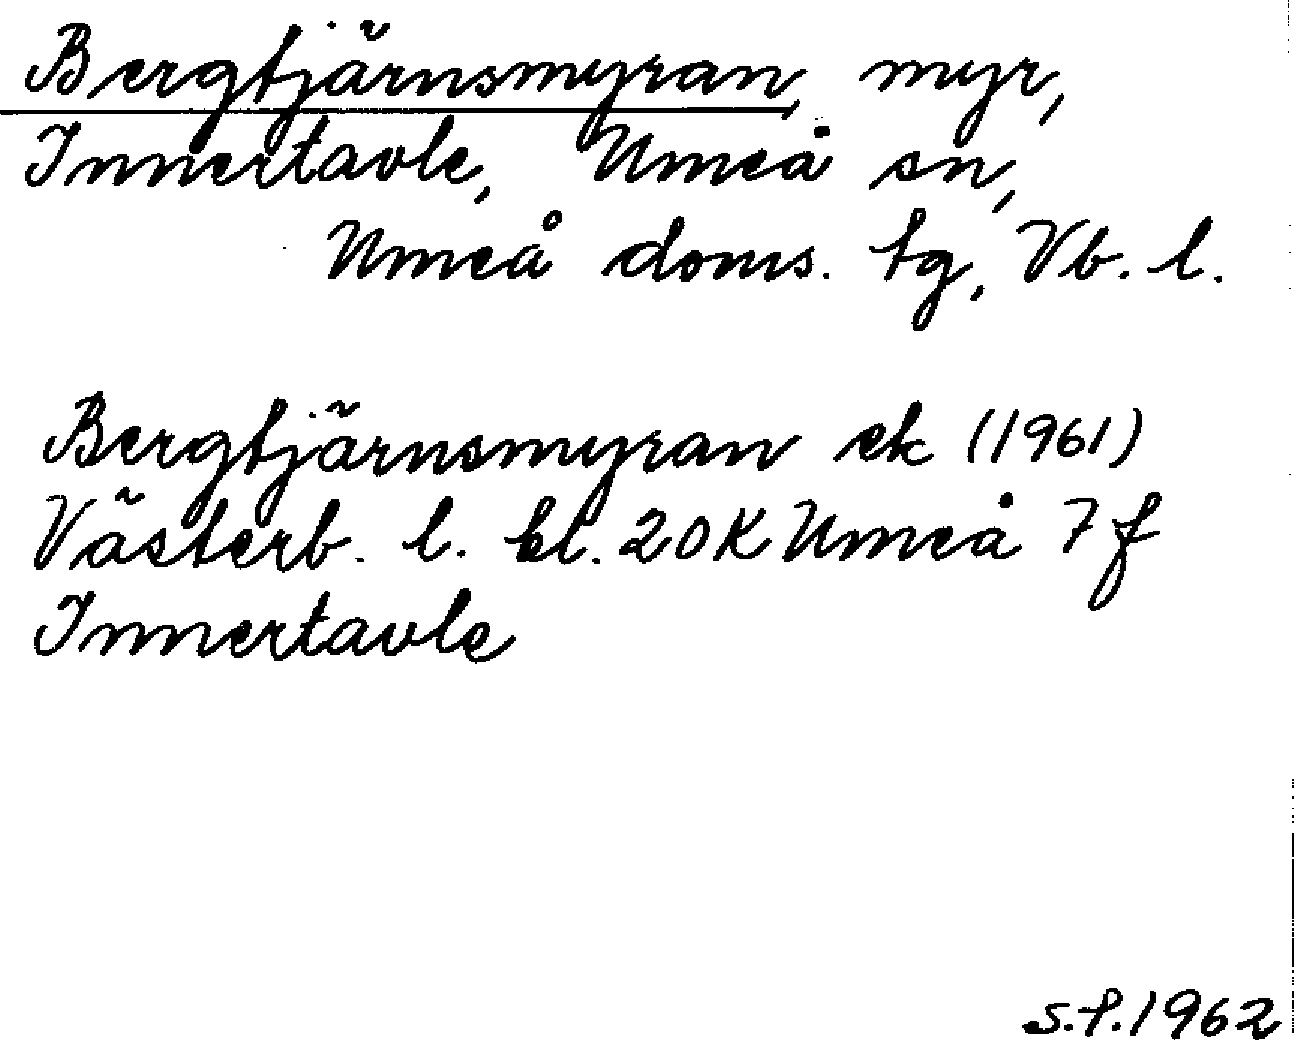 Bergtjärnsmyran, myr,
Innertavle, Umeå sn,
Umeå doms. tg, Vb. l.
Bergtjärnsmyran ek (1961)
Västerb. l. bl. 20K Umeå 7f
Innertavle
s.f. 1962